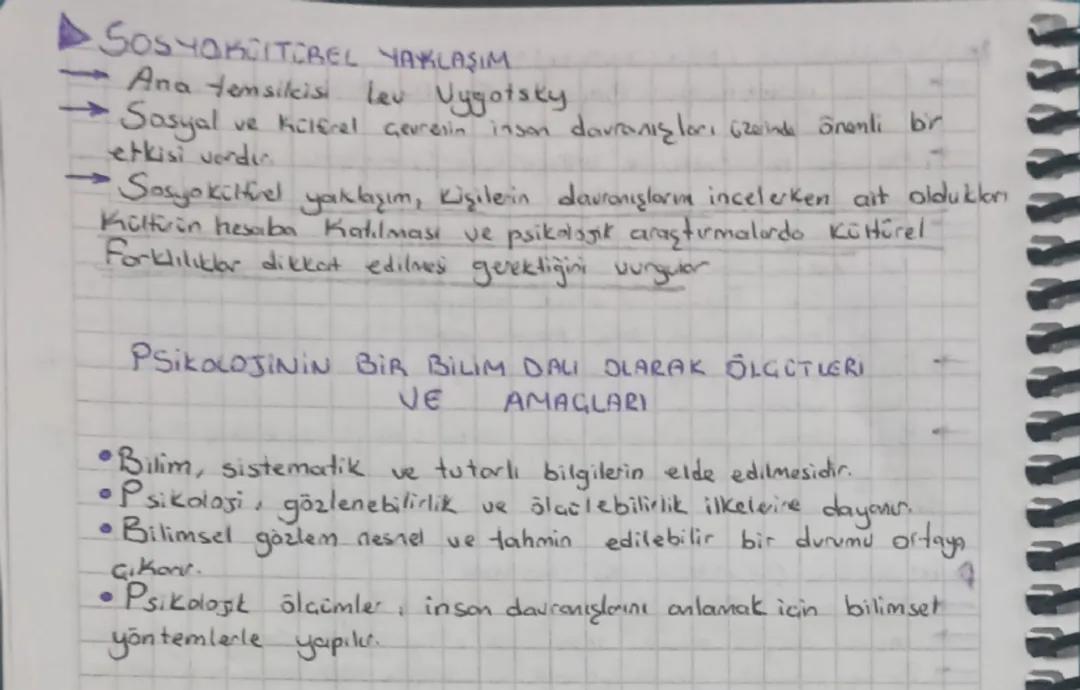 SOSYOKÜLTÜREL YAKLAŞIM
→ Ana temsilcisi Lev Vygotsky
→ Sosyal ve kültürel çevrenin insan davranışları üzerinde önemli bir
etkisi vardır.
→ Sosyokültürel yaklaşım, kişilerin davranışlarını incelerken ait oldukları
kültürün hesaba katılması ve psikolojik araştırmalarda kültürel
farklılıklar dikkat edilmesi gerektiğini vurgular
PSİKOLOJİNİN BİR BİLİM DALI OLARAK ÖLÇÜTLERİ
VE AMAÇLARI
• Bilim, sistematik ve tutarlı bilgilerin elde edilmesidir.
• Psikoloji, gözlenebilirlik ve ölçülebilirlik ilkelerine dayanır.
• Bilimsel gözlem nesnel ve tahmin edilebilir bir durumu ortaya
çıkarır.
• Psikolojik ölçümler, insan davranışlarını anlamak için bilimsel
yöntemlerle yapılır.